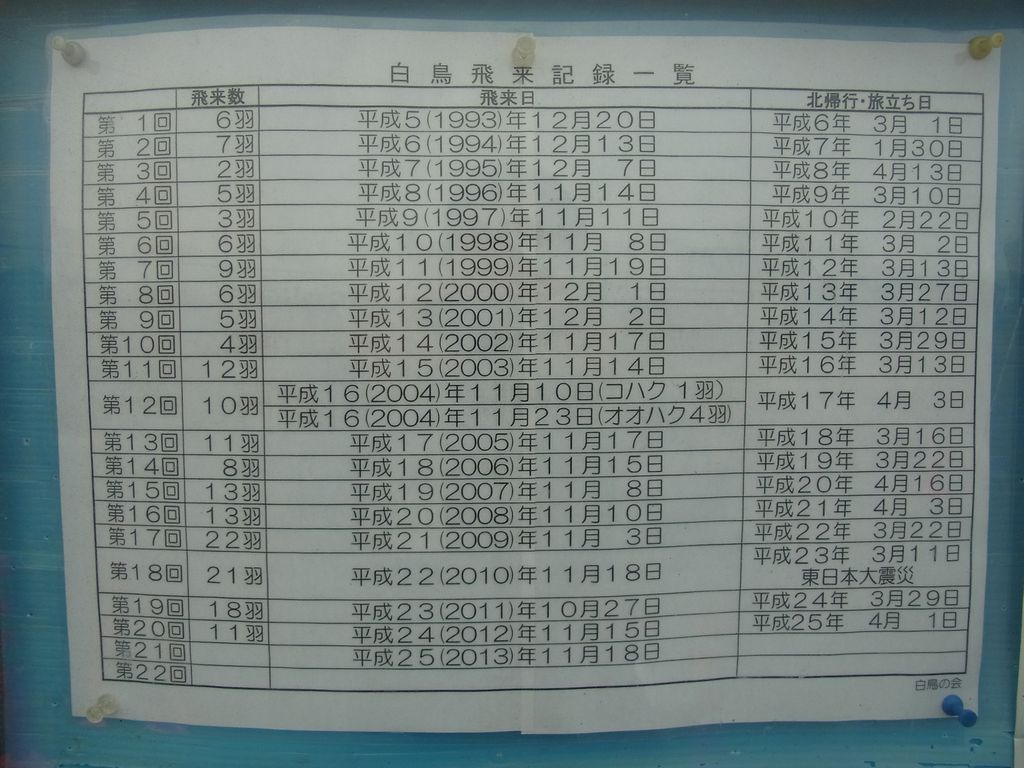 白鳥飛来記録一覧
飛来数 飛来日 北帰行・旅立ち日
第 1回 6羽 平成5(1993)年12月20日 平成6年 3月 1日
第 2回 7羽 平成6(1994)年12月13日 平成7年 1月30日
第 3回 2羽 平成7(1995)年12月 7日 平成8年 4月13日
第 4回 5羽 平成8(1996)年11月14日 平成9年 3月10日
第 5回 3羽 平成9(1997)年11月11日 平成10年 2月22日
第 6回 6羽 平成10(1998)年11月 8日 平成11年 3月 2日
第 7回 9羽 平成11(1999)年11月19日 平成12年 3月13日
第 8回 6羽 平成12(2000)年12月 1日 平成13年 3月27日
第 9回 5羽 平成13(2001)年12月 2日 平成14年 3月12日
第10回 4羽 平成14(2002)年11月17日 平成15年 3月29日
第11回 12羽 平成15(2003)年11月14日 平成16年 3月13日
第12回 10羽 平成16(2004)年11月10日(コハク1羽) 平成17年 4月 3日
平成16(2004)年11月23日(オオハク4羽)
第13回 11羽 平成17(2005)年11月17日 平成18年 3月16日
第14回 8羽 平成18(2006)年11月15日 平成19年 3月22日
第15回 13羽 平成19(2007)年11月 8日 平成20年 4月16日
第16回 13羽 平成20(2008)年11月10日 平成21年 4月 3日
第17回 22羽 平成21(2009)年11月 3日 平成22年 3月22日
第18回 21羽 平成22(2010)年11月18日 平成23年 3月11日
東日本大震災
第19回 18羽 平成23(2011)年10月27日 平成24年 3月29日
第20回 11羽 平成24(2012)年11月15日 平成25年 4月 1日
第21回 平成25(2013)年11月18日
第22回
白鳥の会